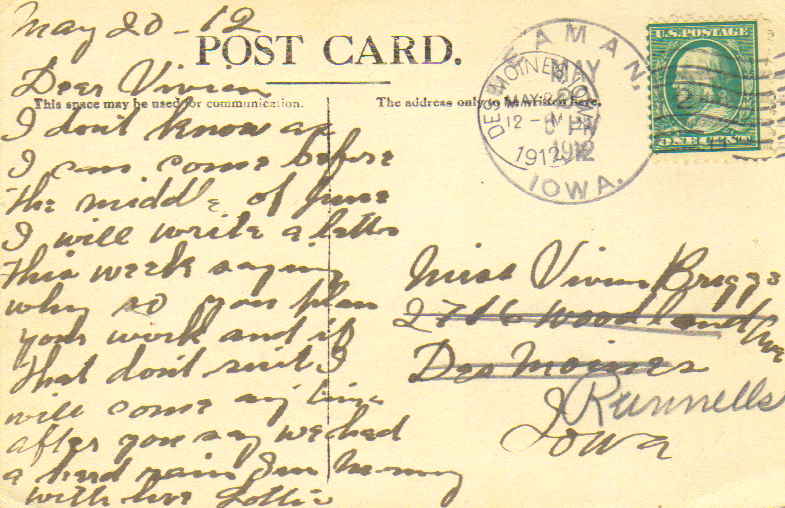 May 20 - 12
POST CARD.
Dear Vivian
This space may be used for communication.
I don't know as
I can come before
the middle of June
I will write a letter
this week saying
why so you plan
your work and if
that don't suit I
will come any time
after you say we had
a hard rain Sun
with love Lottie
The address only to be written here.
BEAMAN,
IOWA.
MAY
20
6 PM
1912
DES MOINES
MAY
12 - M
1912
U.S. POSTAGE
ONE CENT
2
Miss Vivian Briggs
2716 Woodland Ave
Des Moines
Runnells
Iowa